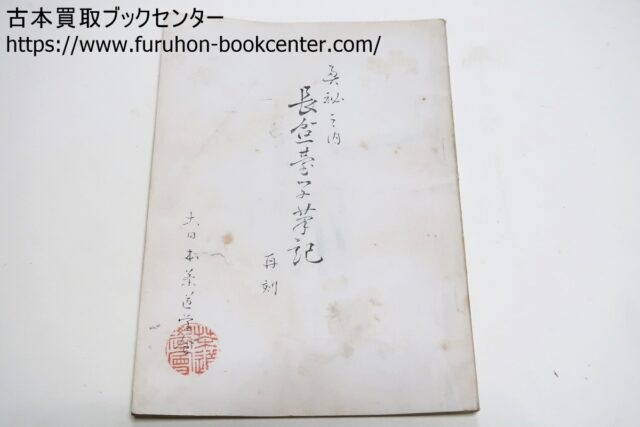 古本買取ブックセンター
https://www.furuhon-bookcenter.com/
奥秘之内
長盆臺子華記
再刻
大日本茶道学会
茶道学会